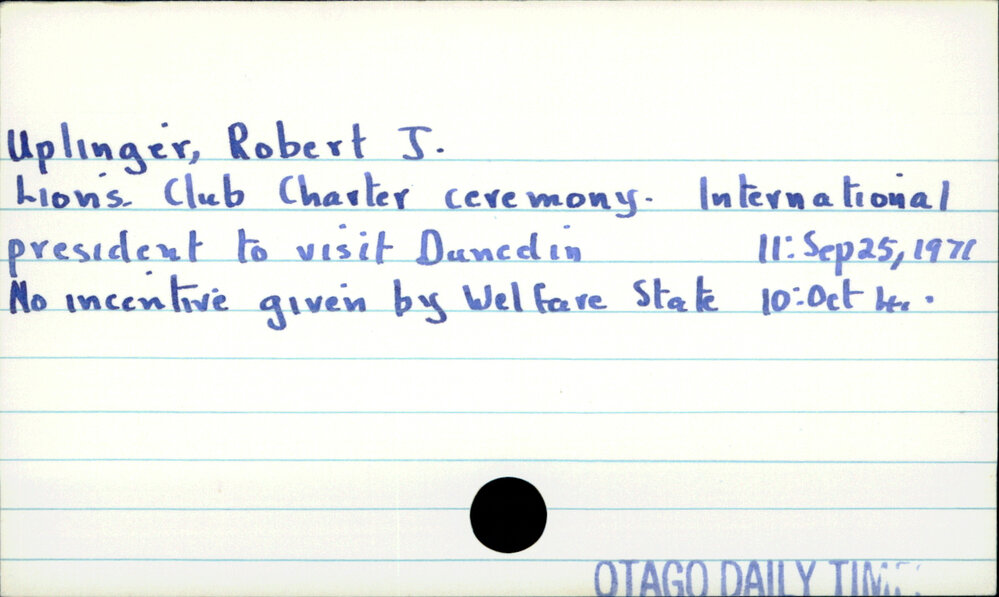 Uplinger, Robert J.
Lions Club Charter ceremony. International
president to visit Dunedin 11: Sep 25, 1971
No incentive given by Welfare State 10: Oct 4.
OTAGO DAILY TIMES